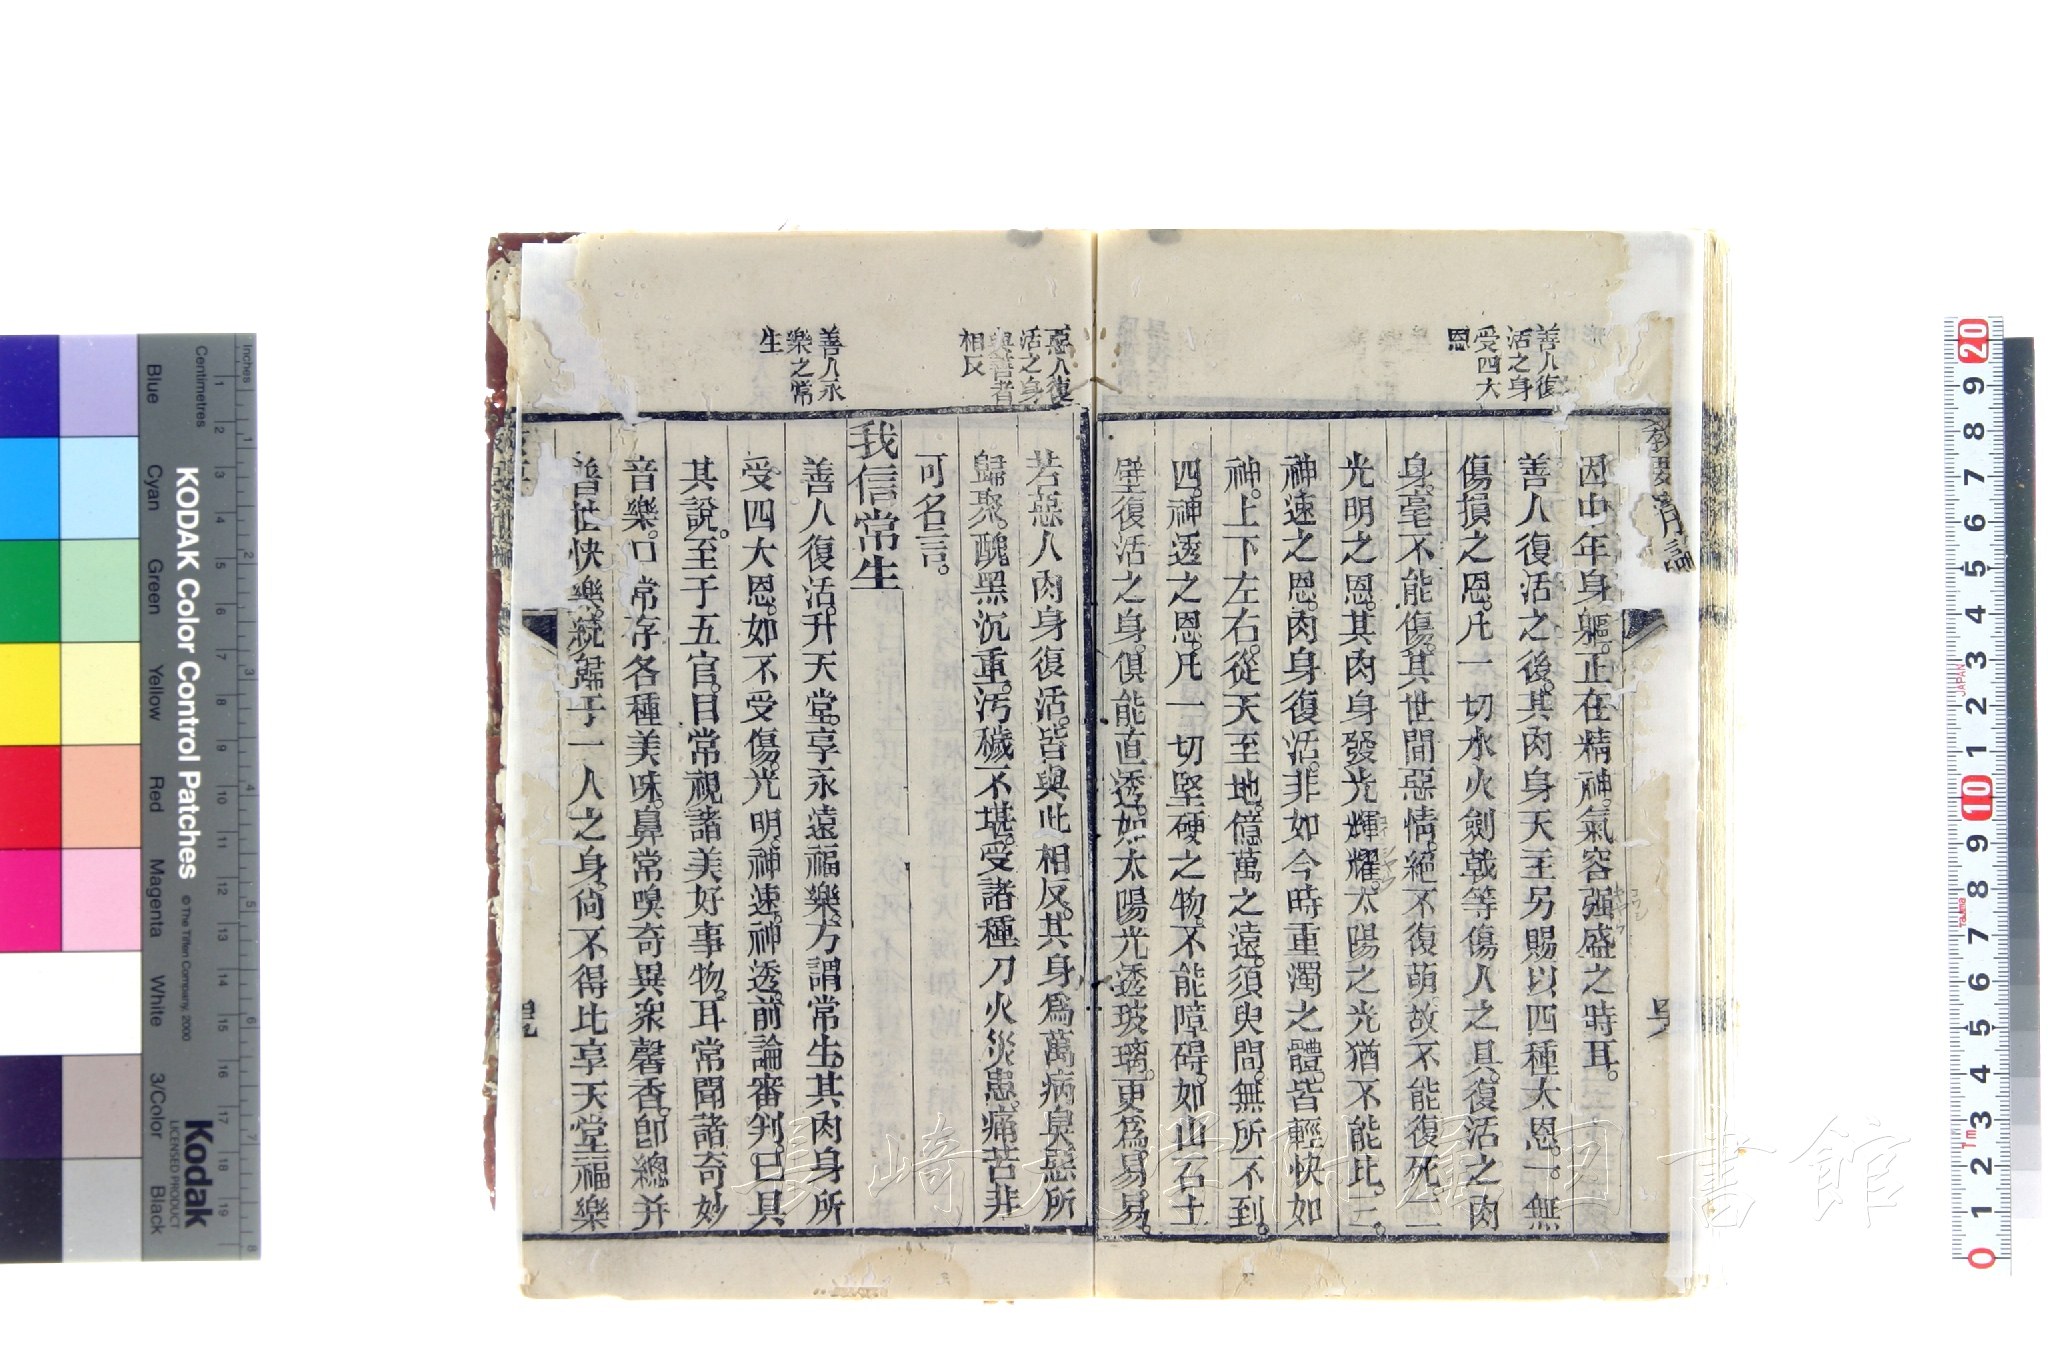 善人復
活之身
受四大
恩
因中年身軀。正在精神。氣容强盛之時耳。
善人復活之後。其肉身天主另賜以四種大恩。一。無
傷損之恩。凡一切水火劍戟等傷人之具。復活之肉
身。毫不能傷。其世間惡情。絕不復萌。故不能復死。二
光明之恩。其肉身發光輝耀。太陽之光猶不能比。三。
神速之恩。肉身復活。非如今時重濁之體。皆輕快如
神。上下左右。從天至地。億萬之遠。須臾間。無所不到。
四。神透之恩。凡一切堅硬之物。不能障碍。如山石土
壁。復活之身。俱能直透。如太陽光透玻璃。更爲易易。
惡人復
活之身
與善者
相反
若惡人肉身復活。皆與此相反。其身爲萬病臭惡所
歸聚。醜黑沉重。汚穢不堪。受諸種刀火災患。痛苦非
可名言。
我信常生
善人永
樂之常
生
善人復活。升天堂。享永遠福樂。方謂常生。其肉身所
受四大恩。如不受傷。光明神速。神透。前論審判。已具
其說。至于五官。目常視諸美好事物。耳常聞諸奇妙
音樂。口常存各種美味。鼻常嗅奇異衆馨香。卽總并
普世快樂。統歸于一人之身。尙不得比享天堂福樂
KODAK Color Control Patches
© The Tiffen Company, 2000
Kodak
LICENSED PRODUCT
Inches
Centimetres
Blue
Cyan
Green
Yellow
Red
Magenta
White
3/Color
Black
長崎大学附属図書館